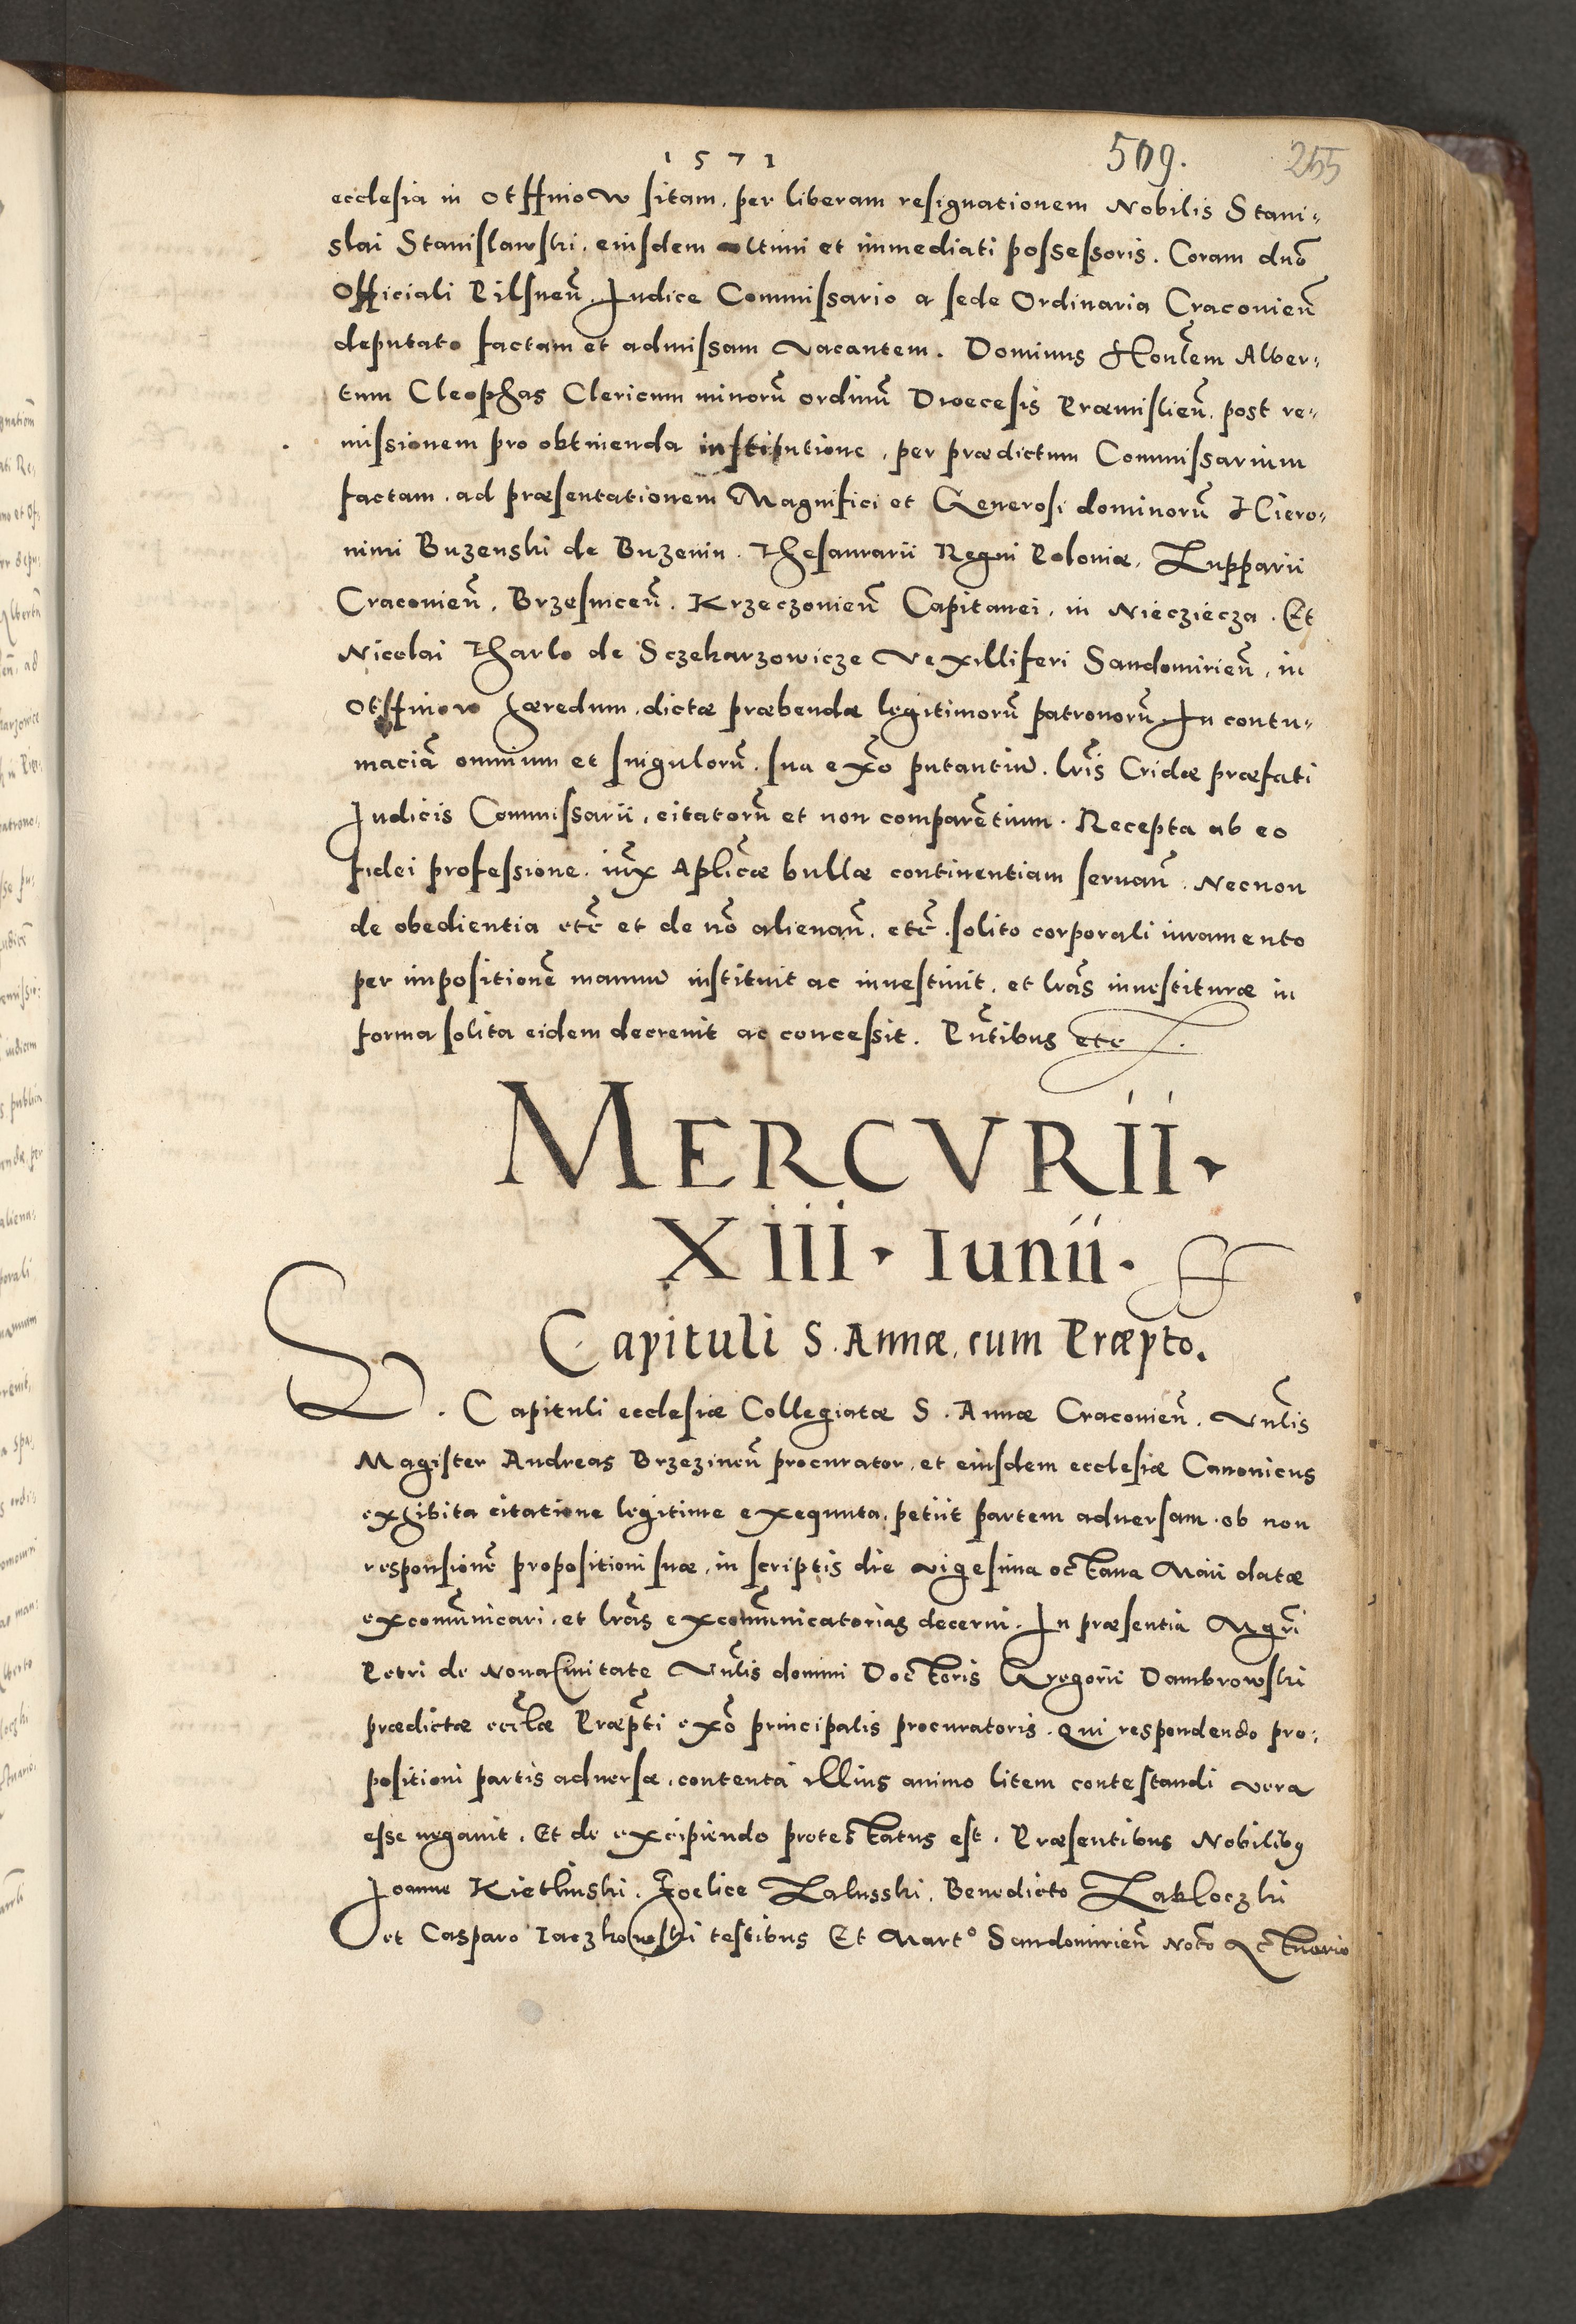 1571 509. 255
ecclesia in Otffinow sitam, per liberam resignationem Nobilis Stani„
slai Stanislawski, eiusdem ultimi et immediati possessoris. Coram dnō
Officiali Pilsneñ. Iudice Commissario a sede Ordinaria Cracovieñ
deputato factam et admissam vacantem. Dominus Honlem Alber„
tum Cleophas Clericum minorū ordinū Dioecesis Præmislieñ. post re„
missionem pro obtinenda institutione, per prædictum Commissarium
factam, ad præsentationem Magnifici et Generosi dominorū Hiero„
nimi Buzenski de Buzenin. Thesaurarii Regni Poloniæ, Zupparii
Cracovieñ, Brzesniceñ. Krzeczovieñ Capitanei, in Niecziecza. Et
Nicolai Tharlo de Sczekarzowicze Vexilliferi Sandomirieñ, in
Otffinow hæredum, dictæ præbendæ legitimorū patronorū. In contu„
maciā omnium et singulorū, sua exō putantiū. lrīs Cridæ præfati
Iudicis Commissarii, citatorū et non comparētium. Recepta ab eo
fidei professione, iūx Aplicæ bullæ continentiam servañ. Necnon
de obedientia etc̄ et de nō alienañ. etc̄. solito corporali iuramento
per impositionē manuū instituit ac investivit, et lrās investituræ in
forma solita eidem decrevit ac concessit. Pñtibus etc.
MERCVRII.
XIII. Iunii.
Capituli S. Annæ, cum Præpto.
S. Capituli ecclesiæ Collegiatæ S. Annæ Cracovieñ. Vnlis
Magister Andreas Brzezineñ procurator, et eiusdem ecclesiæ Canonicus
exhibita citatione legitime exequuta, petiit partem adversam, ob non
responsionē propositioni suæ, in scriptis die vigesima octava Maii datæ
excomūnicari, et lrās excomūnicatorias decerni. In præsentia Mgrī
Petri de Nova Civitate Vnlis domini Doctoris Gregorii Dambrowski
prædictæ eccłæ Præpti exō principalis procuratoris. Qui respondendo pro„
positioni partis adversæ, contenta illius animo litem contestandi vera
esse negavit. Et de excipiendo protestatus est. Præsentibus Nobilibꝰ
Joanne Kietlinski. Foelice Zalusski. Benedicto Zakloczki
et Casparo Iaczkowski testibus Et Mart° Sandomirieñ Notō Actuario